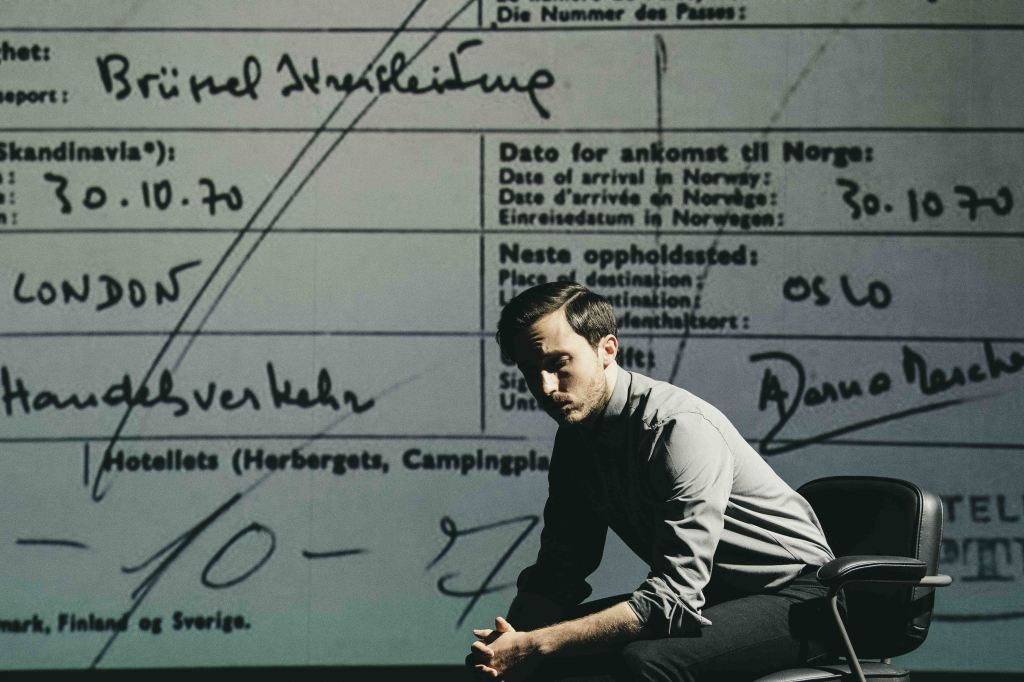 Die Nummer des Passes:
ghet:
Brüssel Kreisleitung
seport:
Skandinavia*):
30.10.70
Dato for ankomst til Norge:
Date of arrival in Norway:
Date d'arrivée en Norvège:
Einreisedatum in Norwegen:
30.10 70
LONDON
Neste oppholdssted:
Place of destination:
tination:
ufenthaltsort:
OSLO
Handelsverkehr
ift:
Hotellets (Herbergets, Campingpla
- 10 - 7
TEL
mark, Finland og Sverige.